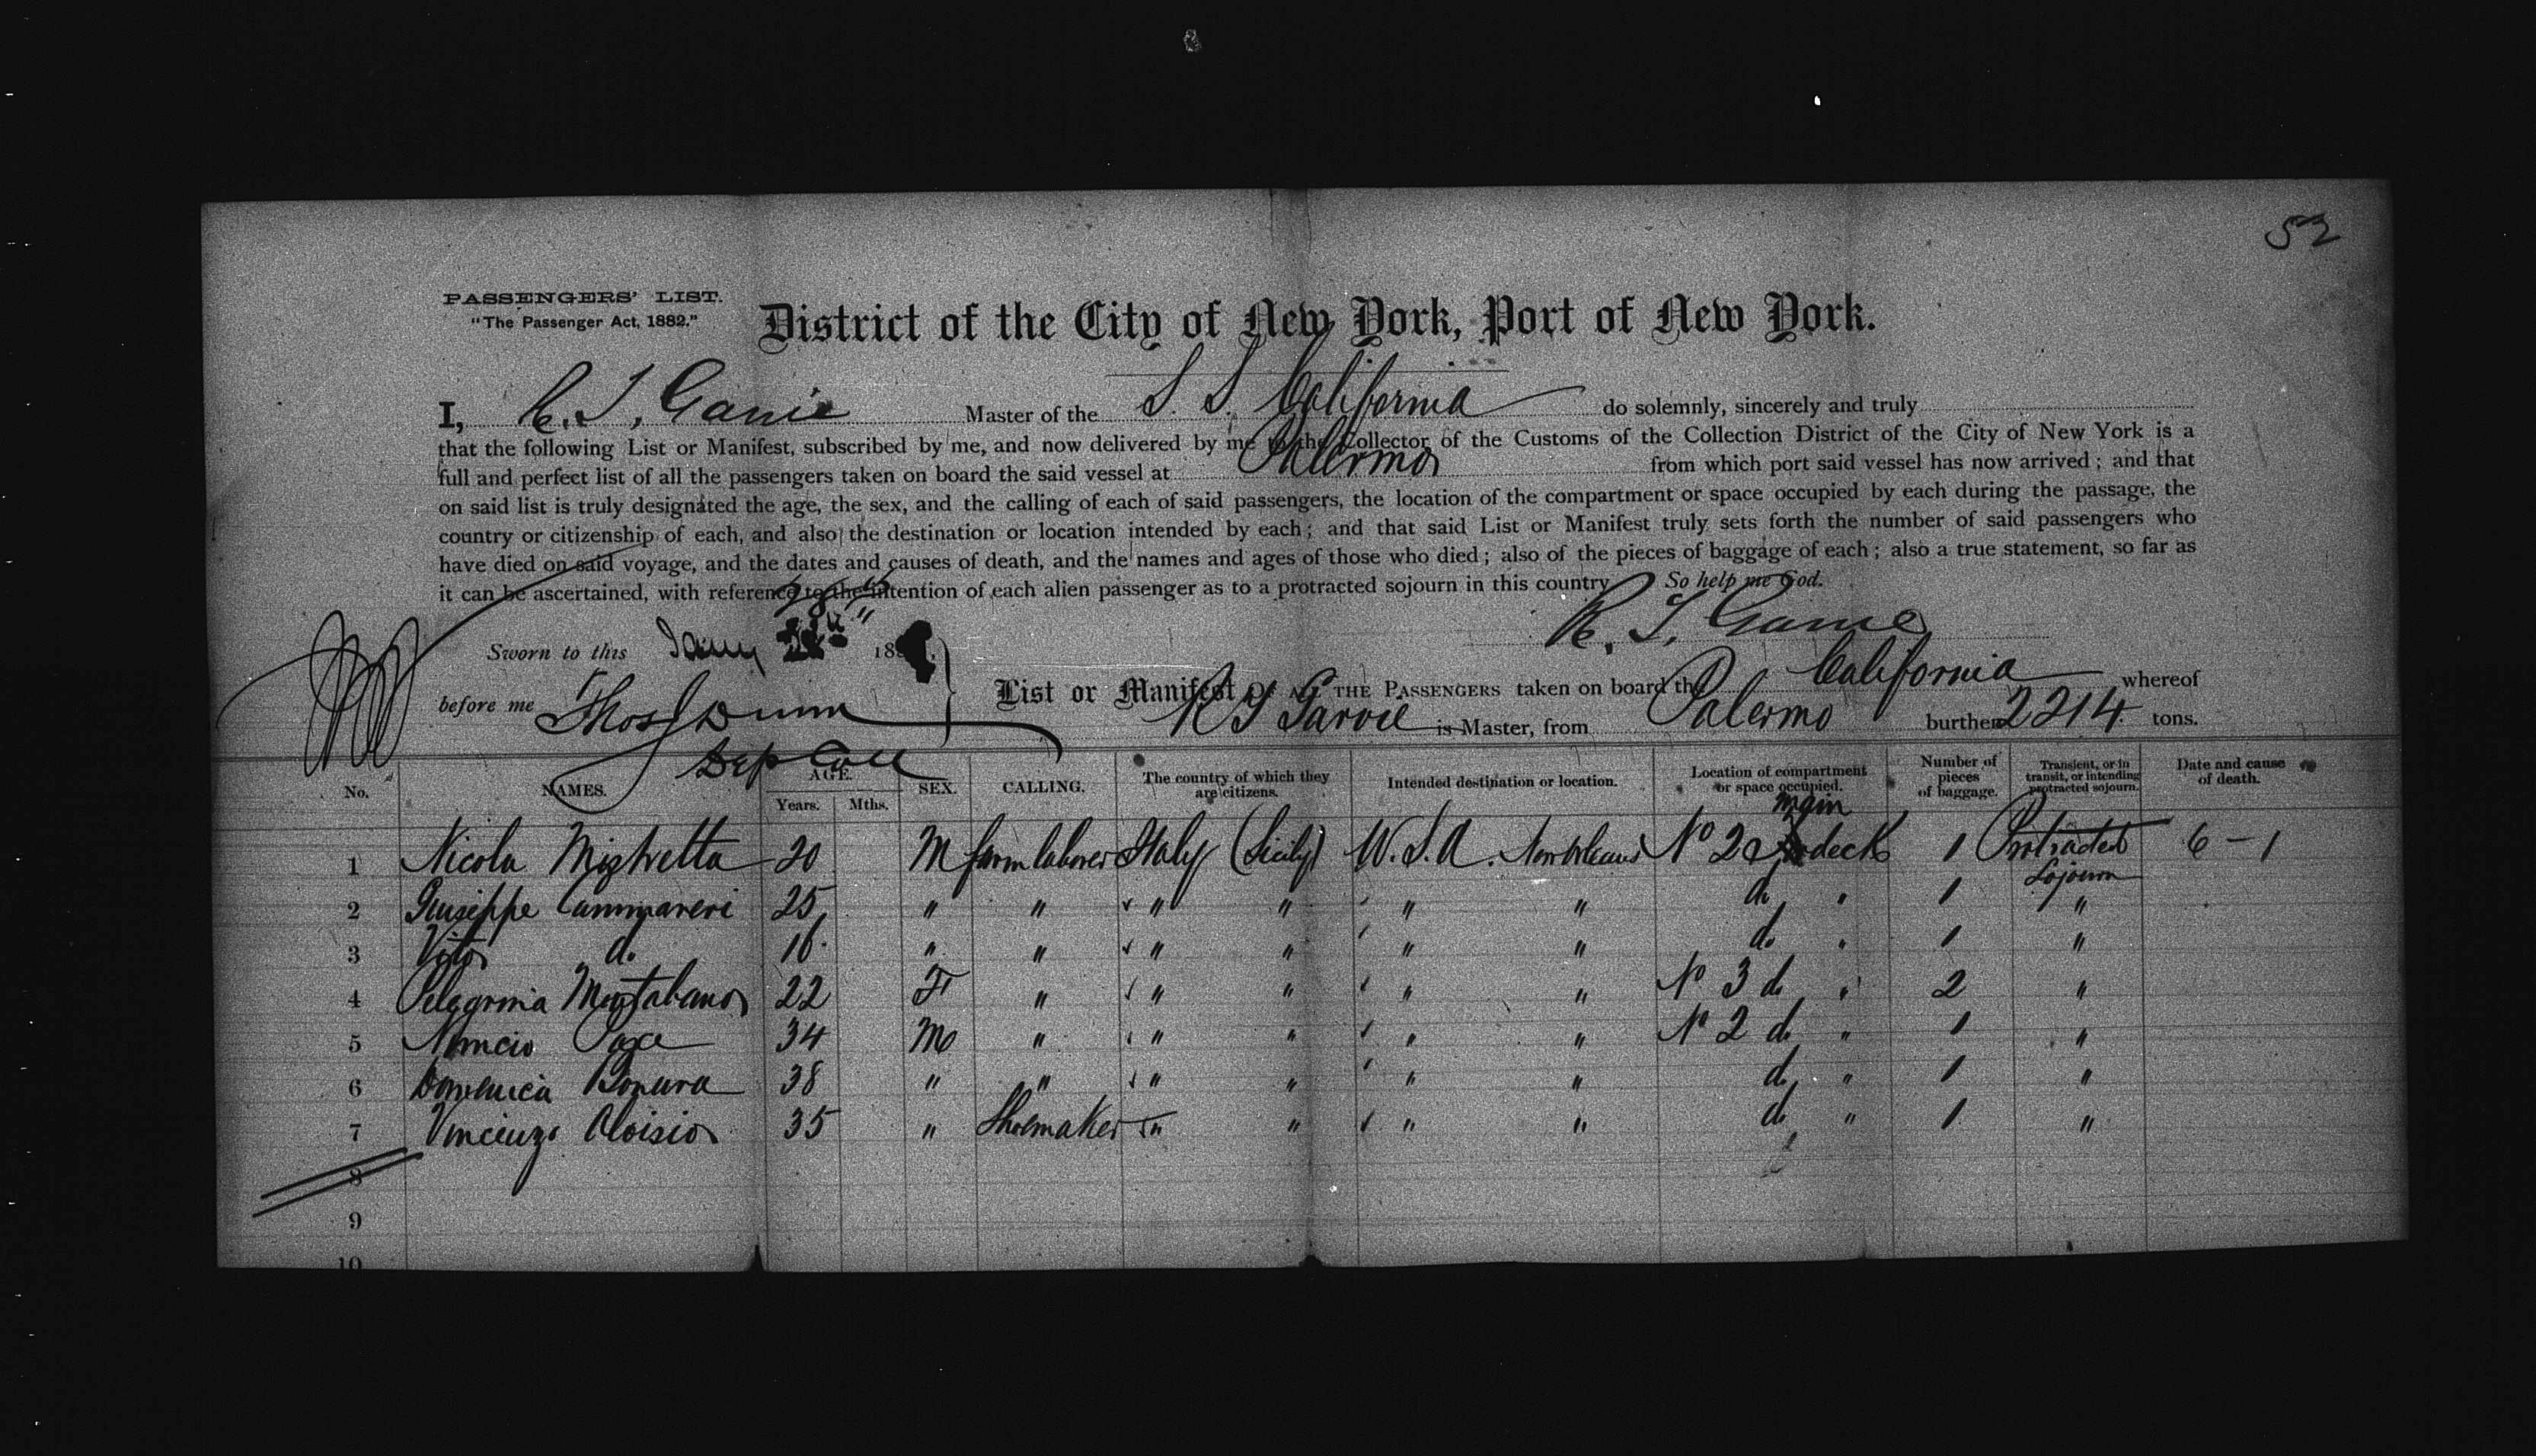 52
PASSENGERS' LIST.
"The Passenger Act, 1882."
District of the City of New York, Port of New York.
I, R. J. Garvie Master of the S. S. California do solemnly, sincerely and truly
that the following List or Manifest, subscribed by me, and now delivered by me to the Collector of the Customs of the Collection District of the City of New York is a
full and perfect list of all the passengers taken on board the said vessel at Palermo from which port said vessel has now arrived; and that
on said list is truly designated the age, the sex, and the calling of each of said passengers, the location of the compartment or space occupied by each during the passage, the
country or citizenship of each, and also the destination or location intended by each; and that said List or Manifest truly sets forth the number of said passengers who
have died on said voyage, and the dates and causes of death, and the names and ages of those who died; also of the pieces of baggage of each; also a true statement, so far as
it can be ascertained, with reference to the intention of each alien passenger as to a protracted sojourn in this country. So help me God.
R. J. Garvie
Sworn to this Jany 28th 18
before me Thos J Dunn
Dep Coll
List or Manifest OF ALL THE PASSENGERS taken on board the California whereof
R J Garvie is Master, from Palermo burthen 2214 tons.
No. NAMES. AGE. Years. Mths. SEX. CALLING. The country of which they are citizens. Intended destination or location. Location of compartment or space occupied. Number of pieces of baggage. Transient, or in transit, or intending protracted sojourn. Date and cause of death.
1 Nicola Mistretta 20 M farm laborer Italy (Sicily) U.S.A. New Orleans No 2 main deck 1 Protracted Sojourn 6 – 1
2 Giuseppe Cammareri 25 " " " " " " do " 1 "
3 Vito do 16 " " " " " " do " 1 "
4 Pelegrina Montalbano 22 F " " " " " No 3 do " 2 "
5 Nuncio Pace 34 M " " " " " No 2 do " 1 "
6 Domenica Bonura 38 " " " " " " do " 1 "
7 Vincenzo Aloisio 35 " Shoemaker " " " " do " 1 "
8
9
10